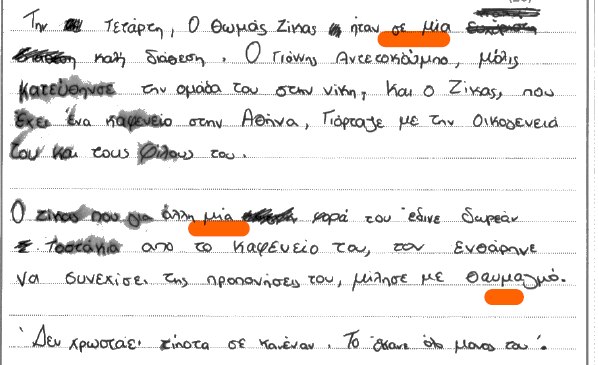 Την Τετάρτη, Ο Θωμάς Ζίκας ήταν σε μία
καλή διάθεση. Ο Γιάννης Αντετοκούμπο, μόλις
κατεύθηνσε την ομάδα του στην νίκη, και ο Ζίκας, που
έχει ένα καφενείο στην Αθήνα, Γιόρταζε με την οικογενειά
του και τους φίλους του.
Ο Ζίκας που για άλλη μία φορά του έδινε δωρεάν
Τοστάκια από το καφενείο του, τον ενθάρηνε
να συνεχίσει της προπονήσεις του, μίλησε με θαυμασμό.
'Δεν χρωστάει τίποτα σε κανέναν. Το έκανε όλο μόνος του'.